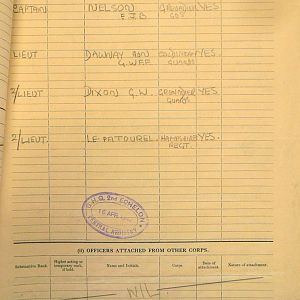 CAPTAIN NELSON GRENADIER YES
E.J.B GDS
LIEUT DAWNAY HON COLDSTREAM YES
GUARDS
2/LIEUT DIXON G.W. GRENADIER YES
GUARDS
2/LIEUT. LE PATOUREL. HAMPSHIRE YES.
REGT.
G.H.Q. 2nd ECHELON
16 APR
CENTRAL REGISTRY
(ii) OFFICERS ATTACHED FROM OTHER CORPS.
Substantive Rank. Highest acting or temporary rank, if held. Name and Initials. Corps. Date of attachment. Nature of attachment.
NIL